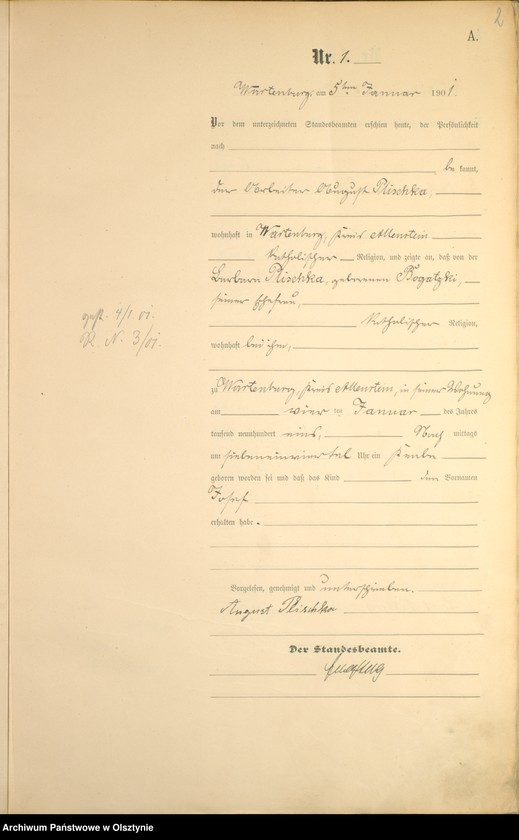 2
A.
Nr. 1.
Wartenburg, am 5ten Januar 1901.
Vor dem unterzeichneten Standesbeamten erschien heute, der Persönlichkeit
nach
be kannt,
der Arbeiter August Plischka,
wohnhaft in Wartenburg, Kreis Allenstein
katholischer Religion, und zeigte an, daß von der
Barbara Plischka, geborenen Bogatzki,
seiner Ehefrau,
katholischer Religion,
wohnhaft bei ihm,
zu Wartenburg, Kreis Allenstein, in seiner Wohnung
am vier ten Januar des Jahres
tausend neunhundert eins, Nach mittags
um sieben einviertel Uhr ein Knabe
geboren worden sei und daß das Kind den Vornamen
Josef
erhalten habe.
Vorgelesen, genehmigt und unterschrieben.
August Plischka
Der Standesbeamte.
4/1. 01.
N. 3/01.
Archiwum Państwowe w Olsztynie